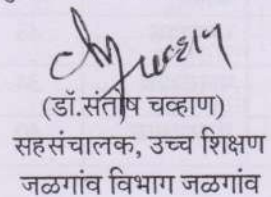 (डॉ.संतोष चव्हाण)
सहसंचालक, उच्च शिक्षण
जळगांव विभाग जळगांव